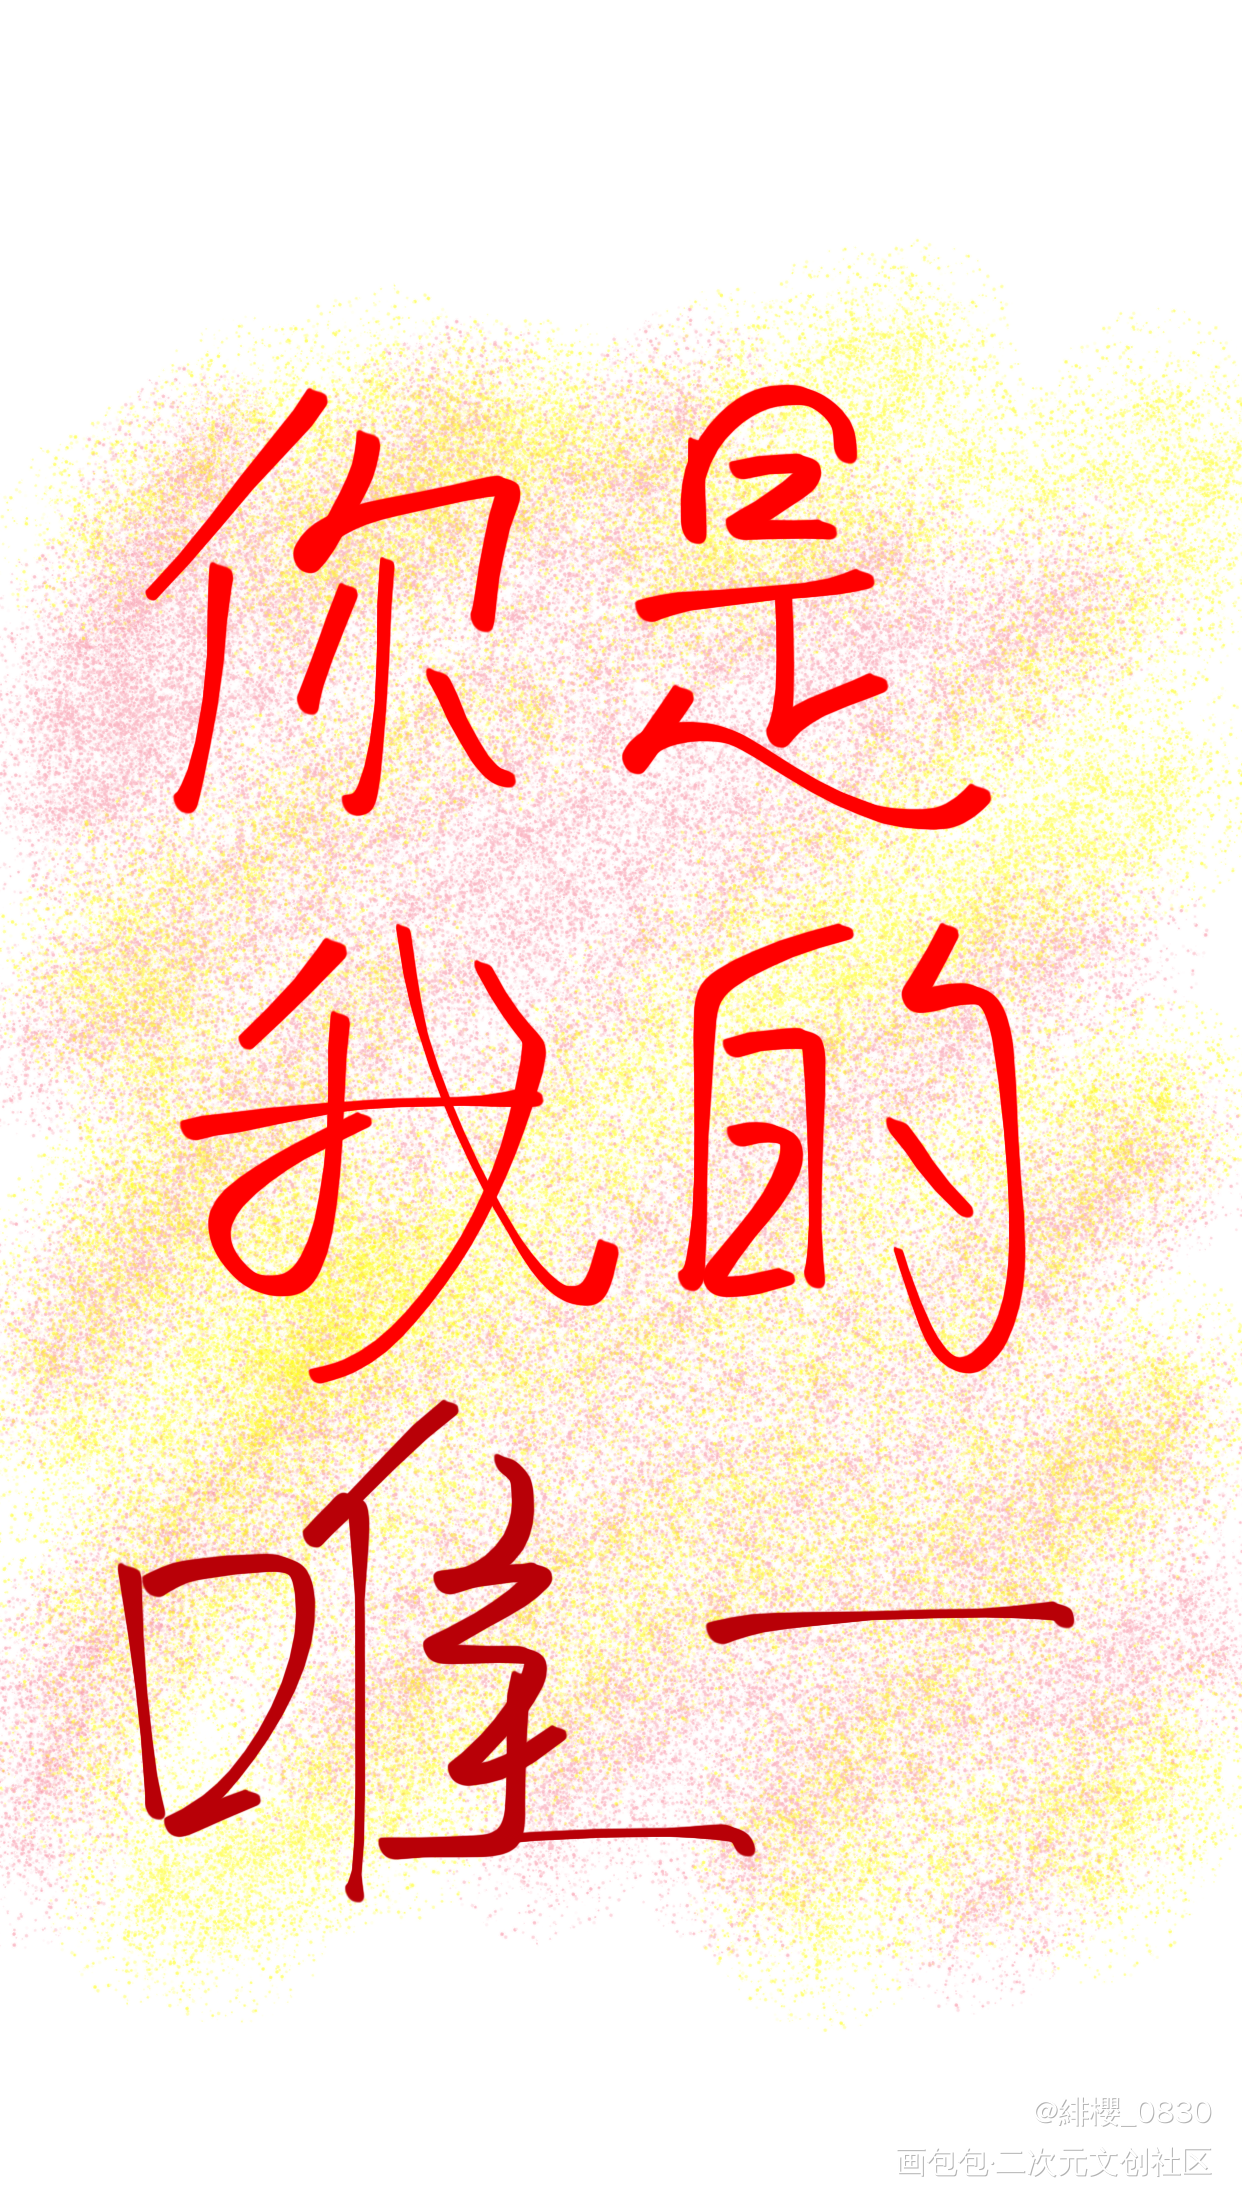 你是
我的
唯一
@緋櫻_0830
画包包·二次元文创社区